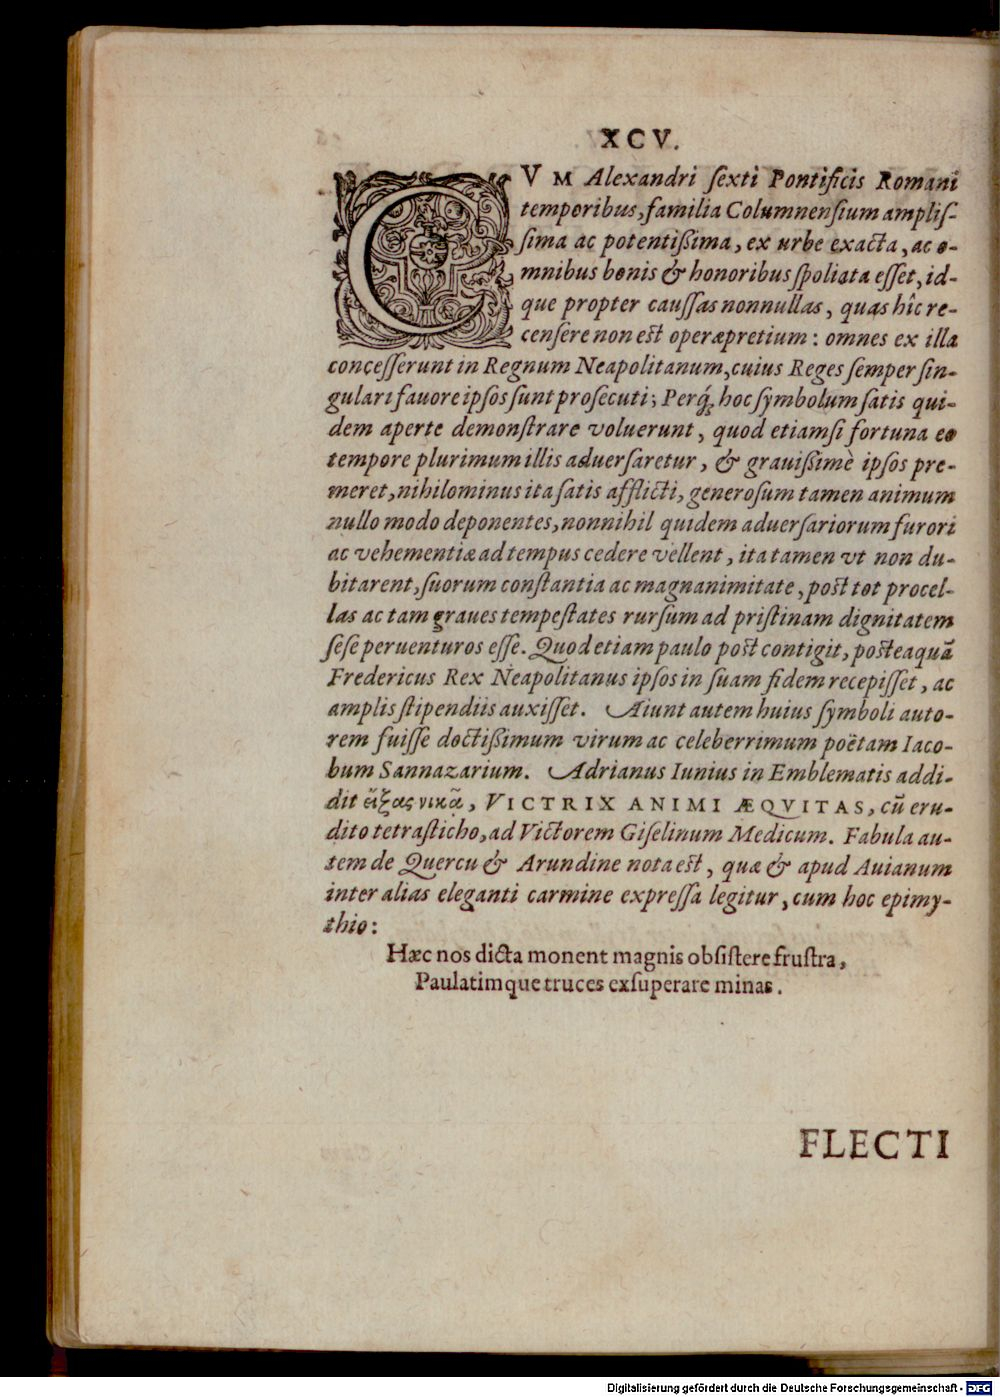 XCV.
CVM Alexandri ſexti Pontificis Romani
temporibus, familia Columnenſium ampliſ-
ſima ac potentißima, ex urbe exacta, ac o-
mnibus bonis & honoribus ſpoliata eſſet, id-
que propter cauſſas nonnullas, quas hîc re-
cenſere non est operæpretium: omnes ex illa
conceſſerunt in Regnum Neapolitanum, cuius Reges ſemper ſin-
gulari fauore ipſos ſunt proſecuti; Perq́; hoc ſymbolum ſatis qui-
dem aperte demonſtrare voluerunt, quod etiamſi fortuna eo
tempore plurimum illis aduerſaretur, & grauißimè ipſos pre-
meret, nihilominus ita ſatis afflicti, generoſum tamen animum
nullo modo deponentes, nonnihil quidem aduerſariorum furori
ac vehementiæ ad tempus cedere vellent, ita tamen vt non du-
bitarent, ſuorum conſtantia ac magnanimitate, post tot procel-
las ac tam graues tempeſtates rurſum ad priſtinam dignitatem
ſeſe peruenturos eſſe. Quod etiam paulo post contigit, posteaquã
Fredericus Rex Neapolitanus ipſos in ſuam fidem recepiſſet, ac
amplis ſtipendiis auxiſſet. Aiunt autem huius ſymboli auto-
rem fuiſſe doctißimum virum ac celeberrimum poëtam Iaco-
bum Sannazarium. Adrianus Iunius in Emblematis addi-
dit εἴξας νικᾶ, VICTRIX ANIMI ÆQVITAS, cũ eru-
dito tetraſticho, ad Victorem Giſelinum Medicum. Fabula au-
tem de Quercu & Arundine nota est, quæ & apud Auianum
inter alias eleganti carmine expreſſa legitur, cum hoc epimy-
thio:
Hæc nos dicta monent magnis obſiſtere fruſtra,
Paulatimque truces exſuperare minas.
FLECTI
Digitalisierung gefördert durch die Deutsche Forschungsgemeinschaft - DFG